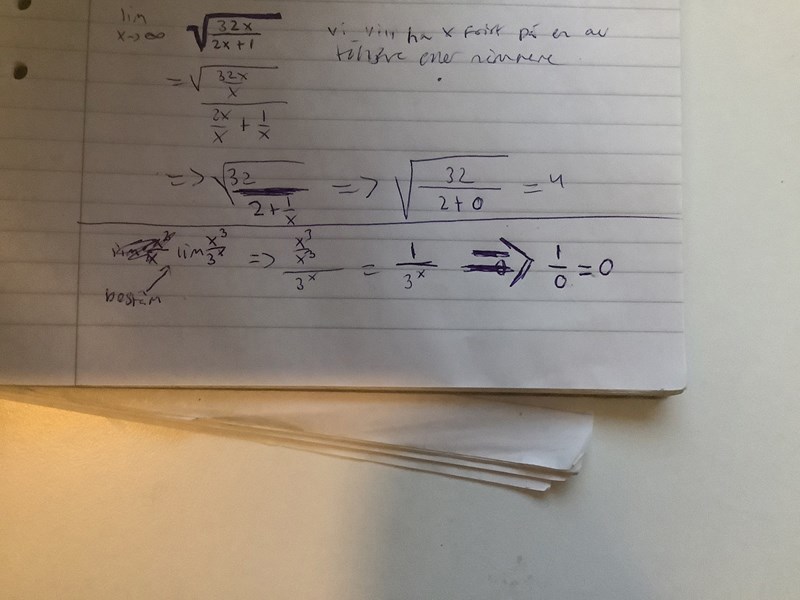 lim x→∞ √(32x/(2x+1)) vi vill ha x först på en av
täljare eller nämnare
= √((32x/x)/(2x/x + 1/x))
=> √(32/(2+1/x)) => √(32/(2+0)) = 4
lim x³/3ˣ => (x³/x³)/3ˣ = 1/3ˣ => 1/0 = 0
bestäm